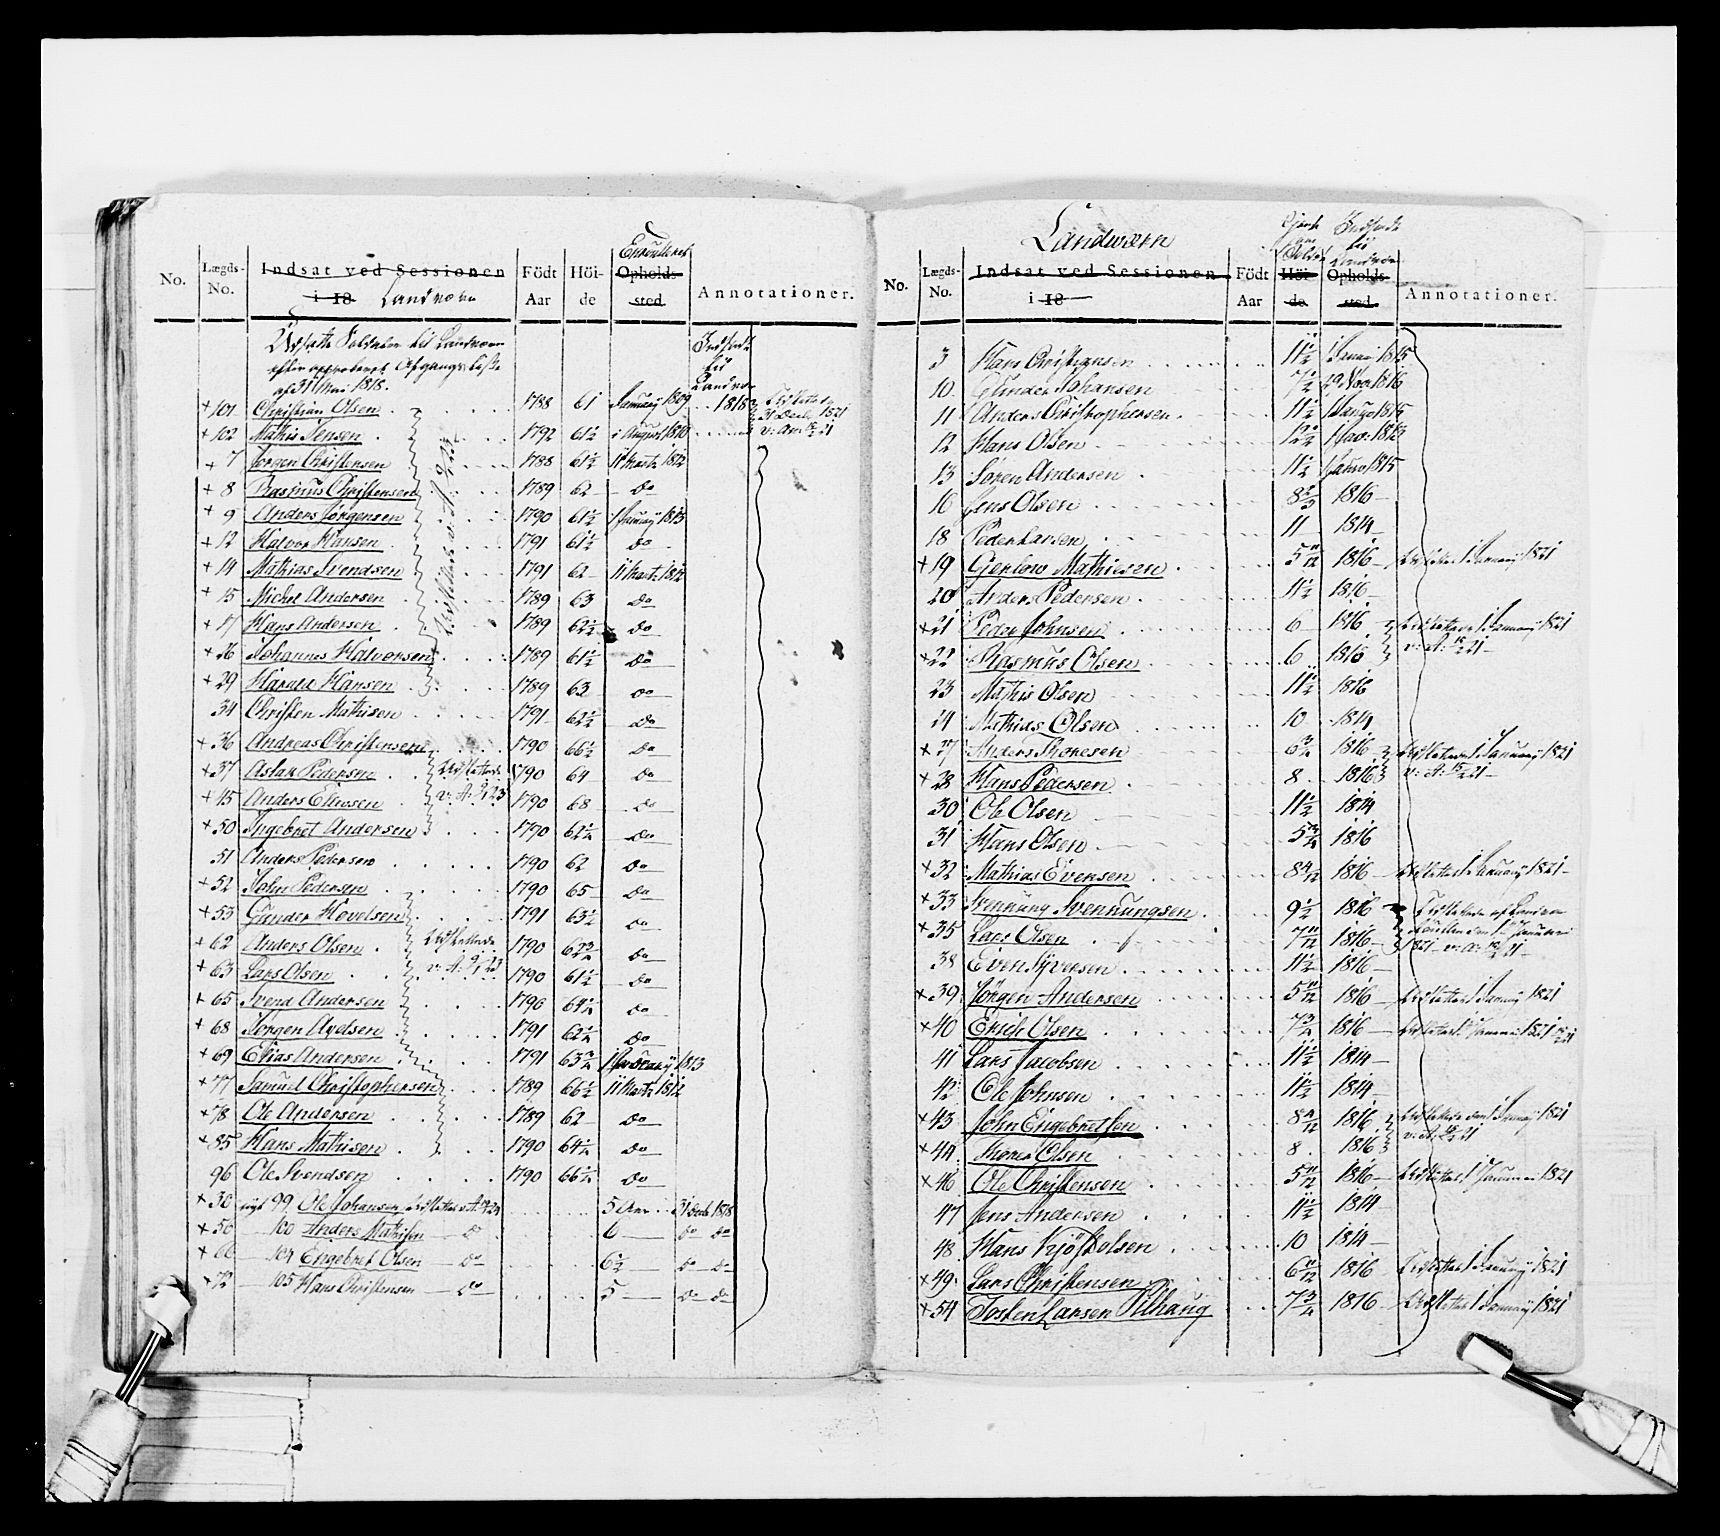 No. Lægds-No. Indsat ved Sessionen i 18 Landværn Födt Aar Höide Enrouleret Opholdssted. Annotationer.
Udsatte Soldater til Landværn
efter approberet Afgangs liste
af 31 Mai 1818.
Indsadt til Landværn
+ 101 Christian Olsen 1788 61 Januarij 1809 1818
+ 102 Mathis Jensen 1792 61½ August 1810
+ 7 Jørgen Christensen 1788 61½ 11 Martz 1812
+ 8 Rasmus Christensen 1789 62 – do
+ 9 Anders Jørgensen 1790 61½ 1 Januarij 1813
+ 12 Halvor Hansen 1791 61½ do
+ 14 Mathias Svendsen 1791 62 – 11 Martz 1812
+ 15 Michel Andersen 1789 63 do
+ 17 Hans Andersen 1789 62½ do
+ 26 Johannes Halvorsen 1789 61½ do
+ 29 Harald Hansen 1789 63 do
34 Christen Mathisen 1791 62½ do
+ 36 Andreas Christensen 1790 66½ do
+ 37 Aslak Pedersen 1790 64 do
+ 45 Anders Elinsen 1790 68 do
+ 50 Ingebret Andersen 1790 62¼ do
51 Anders Pedersen 1790 62 do
+ 52 John Pedersen 1790 65 do
+ 53 Gunder Hovelsen 1791 63½ do
+ 62 Anders Olsen 1790 62¾ do
+ 63 Lars Olsen 1790 61½ do
+ 65 Svend Andersen 1790 64¼ do
+ 68 Jørgen Axelsen 1791 62¼ do
+ 69 Elias Andersen 1791 63¾ 1813
+ 77 Samuel Christophersen 1789 66½ 11 Martz 1812
+ 78 Ole Andersen 1789 62 do
+ 85 Hans Mathisen 1790 64¼ do
96 Ole Svendsen 1790 66½ do
+ 30 99 Ole Johansen 5 Aar 31 Decbr 1818
+ 56 – 100 Anders Mathisen – do 6 do do
– 104 Engebret Olsen – do 6½ do do
+ 72 – 105 Hans Christensen – do 5 do do
Landværn
No. Lægds-No. Indsat ved Sessionen i 18 Födt Aar Höide Indsadt til Landværn Opholdssted. Annotationer.
3 Hans Christiansen 11½ Januar 1815
10 Gunder Johansen 7½ 29 Nov 1816
11 Anders Christophersen 11½ 1815
12 Hans Olsen
13 Søren Andersen 11½ 1815
16 Jens Olsen 8⅔ 1816
18 Peder Larsen 11 1814
+ 19 Gerlow Mathiesen 5 11/12 1816 – Udslettet 1 Januarij 1821
20 Anders Pedersen 11½ 1816
+ 21 Peder Johnsen 6 1816 Udslettede 1 Januarij 1821
+ 22 Rasmus Olsen 6 1816
23 Mathis Olsen 11½ 1816
24 Mathias Olsen 10 1814
+ 27 Anders Thoresen 6¾ 1816 Udslettede 1 Januarij 1821
+ 28 Hans Pedersen 8 1816
30 Ole Olsen 11½ 1814
31 Hans Olsen 5¾ 1816
+ 32 Mathias Evensen 8 4/12 1816 – Udslettet 1 Januarij 1821
+ 33 Svennung Svennungsen 9½ 1816
+ 35 Lars Olsen 7 11/12 1816
38 Even Syversen 11½ 1816
+ 39 Jörgen Andersen 5 11/12 1816 – Udslettet 1 Januarij 1821
+ 40 Erich Olsen 7¾ 1816 – Udslettet 1 Januarij 1821
41 Lars Jacobsen 11½ 1814
42 Ole Johnsen 11½ 1814
+ 43 John Engebretsen 8 4/12 1816 Udslettede den 1 Januarij 1821
+ 44 Thomas Olsen 8 1816
+ 46 Ole Christensen 5 11/12 1816 – Udslettet 1 Januarij 1821
47 Jens Andersen 11½ 1814
48 Hans Kjöstolsen 10 1814
+ 49 Lars Christensen 6 11/12 1816 Udslettet 1 Januarij 1821
+ 54 Tosten Larsen Pilhaug 7¾ 1816 – Udslettet 1 Januarij 1821